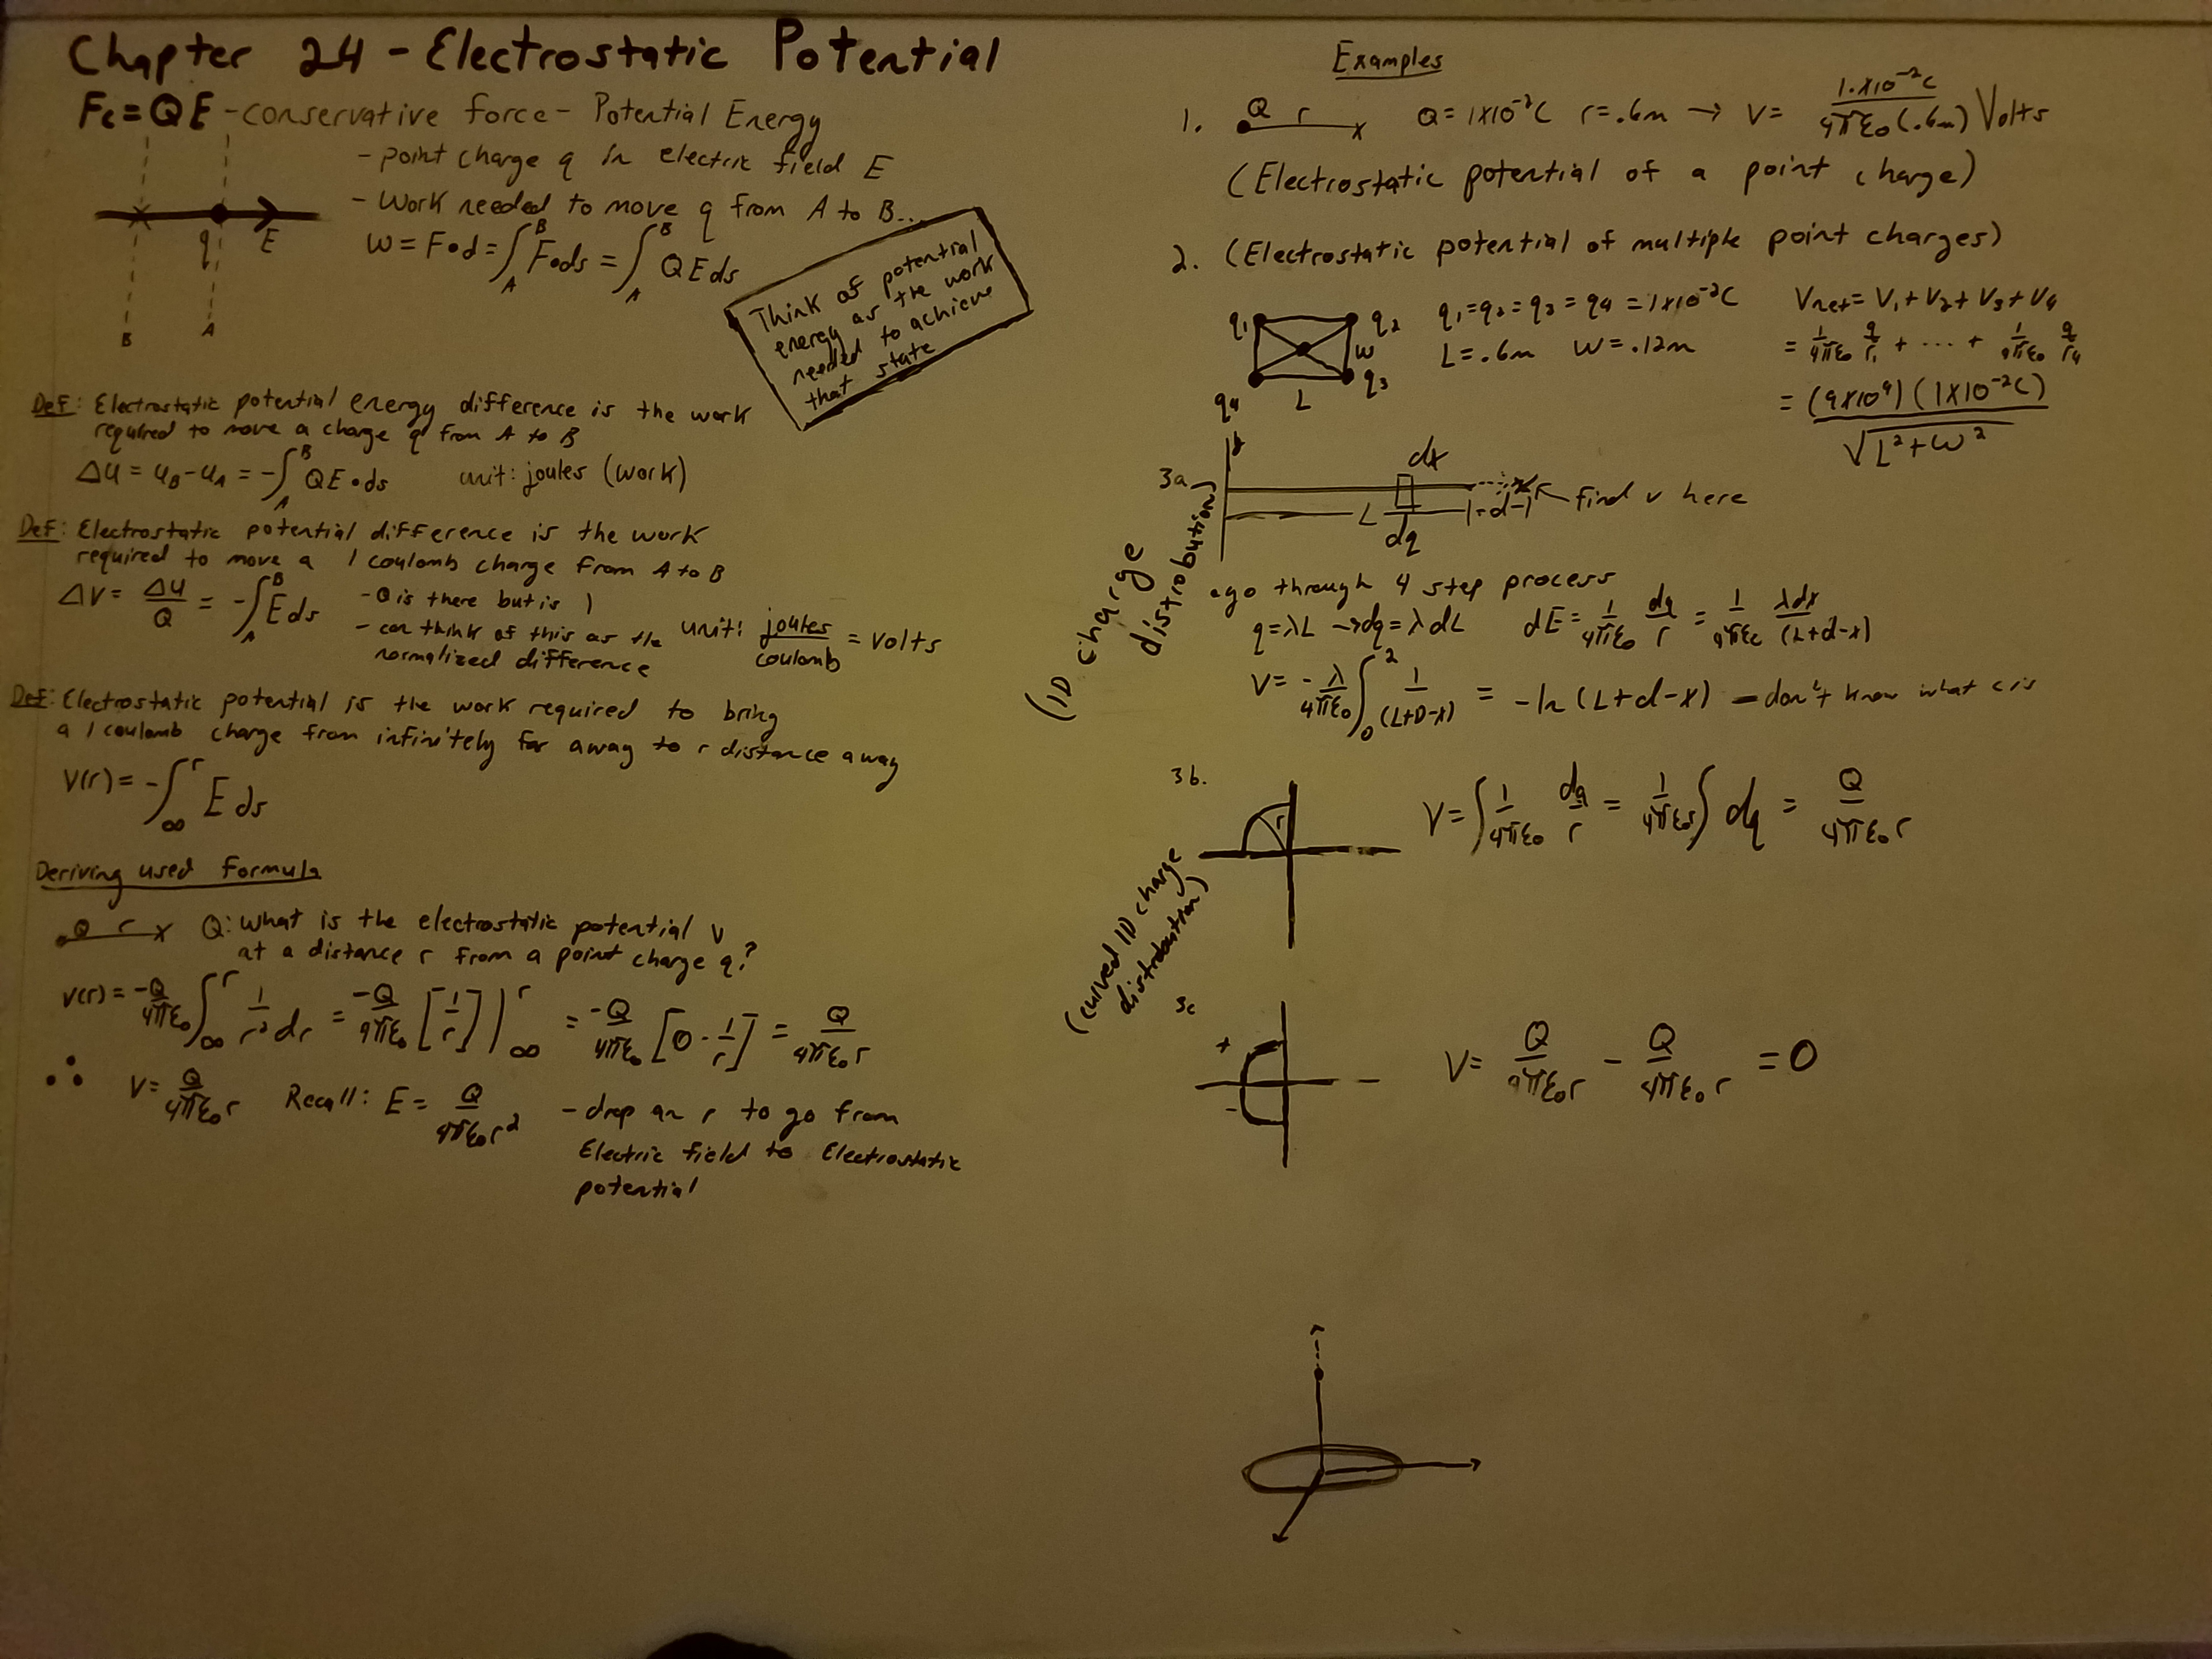 Chapter 24 - Electrostatic Potential
Fc = QE - conservative force - Potential Energy
- point charge q in electric field E
- Work needed to move q from A to B...
q E
B A
W = F•d = ∫_A^B F•ds = ∫_A^B QEds
Think of potential
energy as the work
needed to achieve
that state
Def: Electrostatic potential energy difference is the work
required to move a charge q from A to B
Δu = u_B - u_A = -∫_A^B QE•ds unit: joules (work)
Def: Electrostatic potential difference is the work
required to move a 1 coulomb charge from A to B
ΔV = ΔU/Q = -∫_A^B E ds
- Q is there but is 1
- can think of this as the
normalized difference
unit: joules/coulomb = volts
Def: Electrostatic potential is the work required to bring
a 1 coulomb charge from infinitely far away to r distance away
V(r) = -∫_∞^r E ds
Deriving used formula
Q r x Q: What is the electrostatic potential V
at a distance r from a point charge q?
V(r) = -Q/4πε₀ ∫_∞^r 1/r² dr = -Q/4πε₀ [1/r]|_∞^r = -Q/4πε₀ [0 - 1/r] = Q/4πε₀r
∴ V = Q/4πε₀r Recall: E = Q/4πε₀r² - drop an r to go from
Electric field to Electrostatic
potential
Examples
1. Q r x Q = 1x10⁻²C r = .6m → V = 1.x10⁻²C/4πε₀(.6m) Volts
(Electrostatic potential of a point charge)
2. (Electrostatic potential of multiple point charges)
q₁ q₂ w q₃ q₄ L
q₁ = q₂ = q₃ = q₄ = 1x10⁻²C
L = .6m W = .12m
Vnet = V₁ + V₂ + V₃ + V₄
= 1/4πε₀ q/r₁ + ... + 1/4πε₀ q/r₄
= (9x10⁹)(1x10⁻²C)/√L²+w²
(1D charge
distrobution)
3a dx
L dq |-d-| find v here
go through 4 step process
q = λL → dq = λdL dE = 1/4πε₀ dq/r = 1/4πε₀ λdx/(L+d-x)
V = -λ/4πε₀ ∫_0^2 1/(L+D-x) = -ln(L+d-x) - don't know what c is
(curved 1D charge
distrobution)
3b. r
V = ∫ 1/4πε₀ dq/r = 1/4πε₀r ∫ dq = Q/4πε₀r
3c + -
V = Q/4πε₀r - Q/4πε₀r = 0